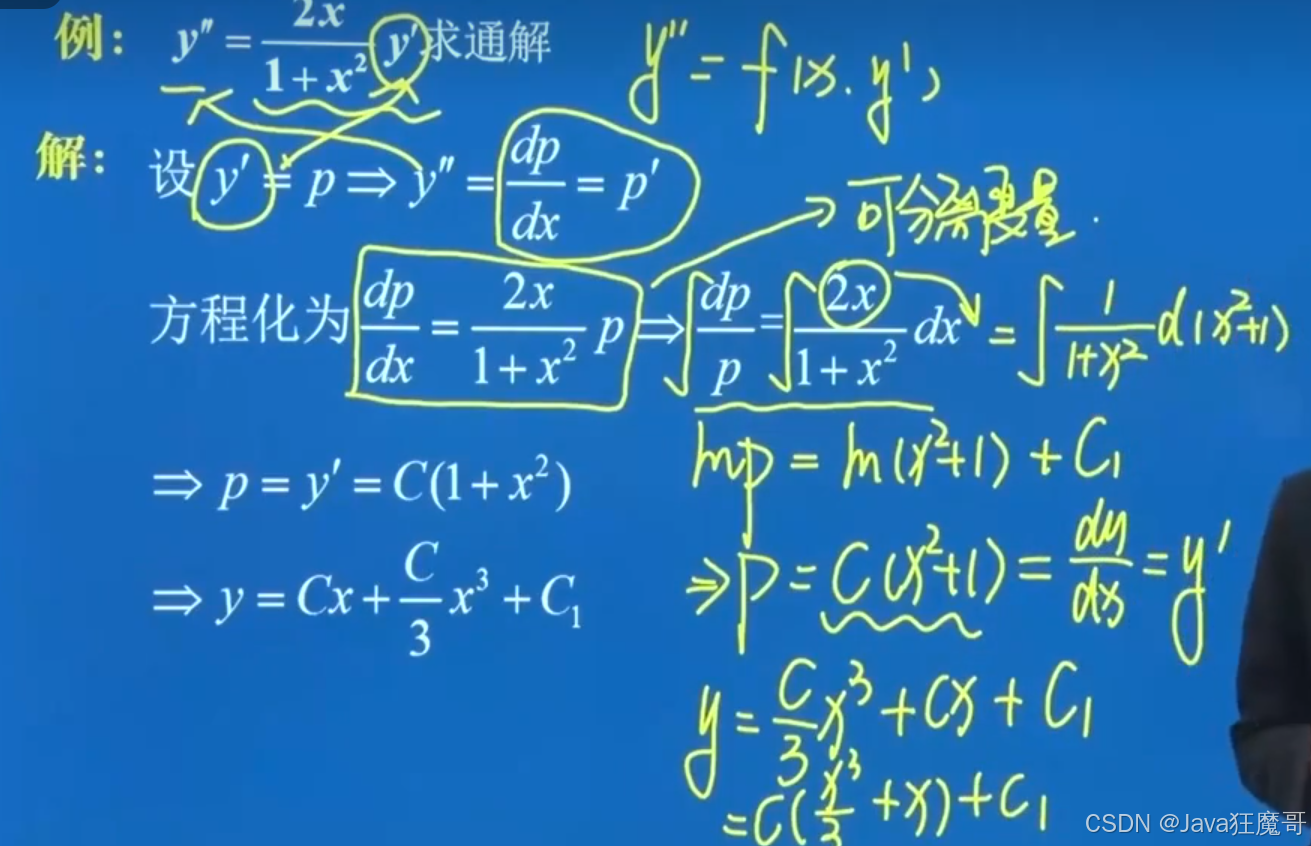 例： y″ = \frac{2x}{1+x²} y′ 求通解
y″ = f(x, y′)
解： 设 y′ = p ⇒ y″ = \frac{dp}{dx} = p′
可分离变量.
方程化为 \frac{dp}{dx} = \frac{2x}{1+x²} p ⇒ ∫\frac{dp}{p} = ∫\frac{2x}{1+x²} dx = ∫\frac{1}{1+x²} d(x²+1)
lnp = ln(x²+1) + C₁
⇒ p = y′ = C(1+x²)
⇒ p = C(x²+1) = \frac{dy}{dx} = y′
⇒ y = Cx + \frac{C}{3}x³ + C₁
y = \frac{C}{3}x³ + Cx + C₁
= C(\frac{x³}{3} + x) + C₁
CSDN @Java狂魔哥